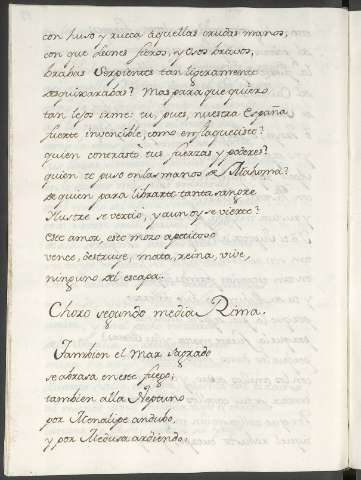 con huso y rueca aquellas crudas manos,
con que leones fieros, y osos bravos,
brabas Serpientes tan ligeramente
desquixarabas? Mas para que quiero
tan lejos irme: tu, pues, nuestra España
fuerte invencible, como enflaqueciste?
quien contrastó tus fuerzas y poderes?
quien te puso en las manos de Mahoma?
de quien para librarte tanta sangre
Ilustre se vertió, y aun oy se vierte?
este amor, este mozo apetitoso
vence, destruye, mata, reina, vive,
ninguno del escapa.
Choro segundo media Rima.
Tambien el Mar Sagrado
se abrasa en este fuego;
tambien allá Neptuno
por Menalipe andubo,
y por Medusa ardiendo.